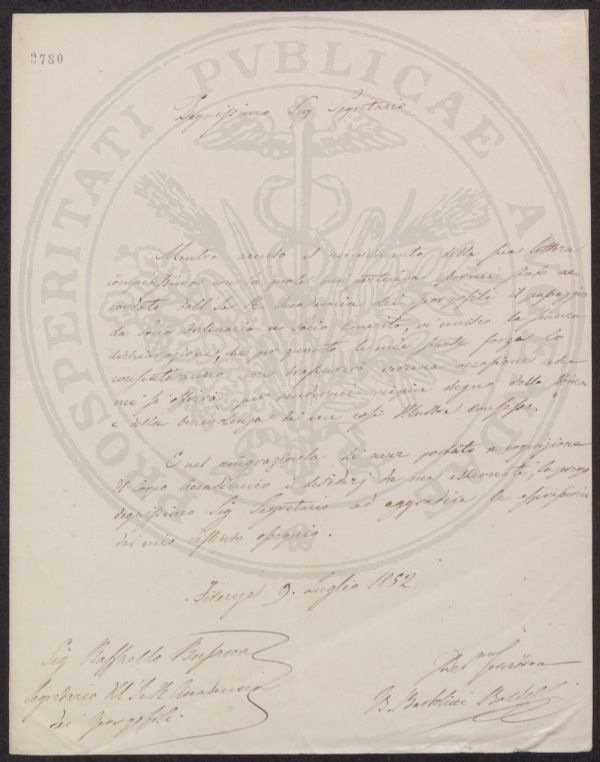 2780
PROSPERITATI PVBLICAE AVGENDAE
Degnissimo Sig Segretario
Mentre accuso il ricevimento della sua lettera
compitissima con la quale mi partecipa essermi stato ac
cordato dall' I e R. Accademia dei Georgofili il passaggio
da socio Ordinario a socio Emerito, vi unisco la sincera
dichiarazione, che per quanto le mie forze lo
consentiranno non trascurerò veruna occasione che
mi si offrirà per rendermi sempre degno della stima
e della benevolenza di un così illustre consesso.
E nel ringraziarla di aver portato a cognizione
del Corpo Accademico i desiderj da me esternati, la prego
degnissimo Sig Segretario ad aggradire le espressioni
del mio distinto ossequio.
Firenze 9. Luglio 1852.
Sig Raffaello Busacca
Segretario dell' I e R Accademia
dei Georgofili.
Servitore
B. Bartolini Baldelli